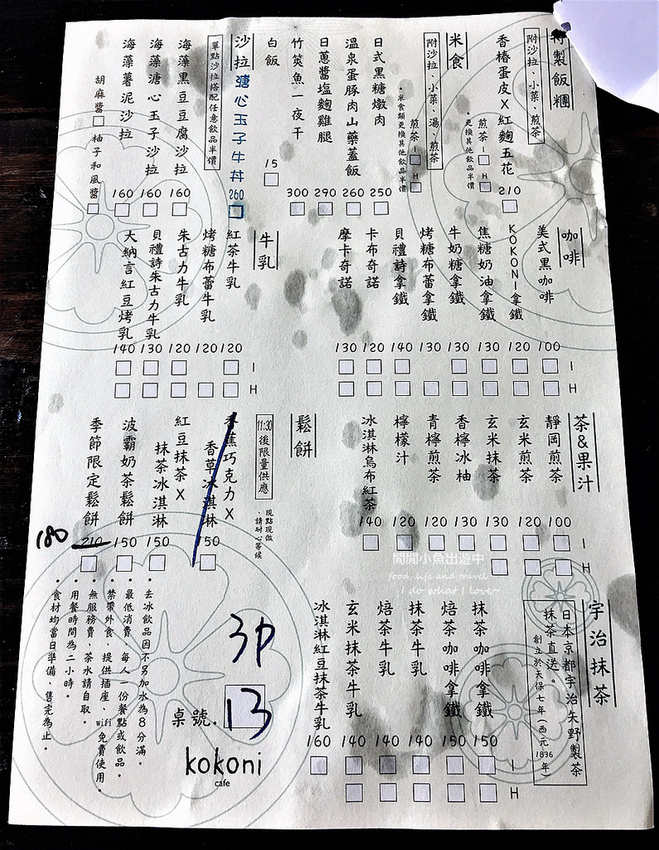 特製飯糰
附沙拉、小菜、煎茶
香椿蛋皮X紅麴五花 210
煎茶 I H
更換其他飲品半價
米食
附沙拉、小菜、湯、煎茶
煎茶 I H
米食類更換其他飲品半價
日式黑糖燉肉 250
溫泉蛋豚肉山藥蓋飯 260
日蔥醬塩麴雞腿 290
竹筴魚一夜干 300
白飯 15
溏心玉子牛丼 260
沙拉
單點沙拉搭配任意飲品半價
海藻黑豆豆腐沙拉 160
海藻溏心玉子沙拉 160
海藻薯泥沙拉 160
胡麻醬 柚子和風醬
咖啡
I
H
美式黑咖啡 100
KOKONI拿鐵 120
焦糖奶油拿鐵 130
牛奶糖拿鐵 130
烤糖布蕾拿鐵 130
貝禮詩拿鐵 140
卡布奇諾 120
摩卡奇諾 130
牛乳
I
H
紅茶牛乳 120
烤糖布蕾牛乳 120
朱古力牛乳 120
貝禮詩朱古力牛乳 130
大納言紅豆烤乳 140
茶&果汁
I
H
靜岡煎茶 100
玄米煎茶 120
玄米抹茶 130
香檸冰柚 130
青檸煎茶 120
檸檬汁 120
冰淇淋烏布紅茶 140
鬆餅
11:30後限量供應
現點現做、請耐心等候
香蕉巧克力X
香草冰淇淋 150
紅豆抹茶X
抹茶冰淇淋 150
波霸奶茶鬆餅 150
季節限定鬆餅 210
180
宇治抹茶
日本京都宇治矢野製茶
抹茶直送。
創立於天保七年(西元1836年)
I
H
抹茶咖啡拿鐵 150
焙茶咖啡拿鐵 150
抹茶牛乳 140
焙茶牛乳 140
玄米抹茶牛乳 140
冰淇淋紅豆抹茶牛乳 160
3P
桌號. 13
kokoni
cafe
•去冰飲品因不另加水為8分滿。
•最低消費，每人一份餐點或飲品。
•禁帶外食、提供插座、wifi免費使用。
•無服務費、茶水請自取。
•用餐時間為二小時。
•食材均當日準備、售完為止。
閒閒小魚出遊中
food, life and travel
I do what I love~